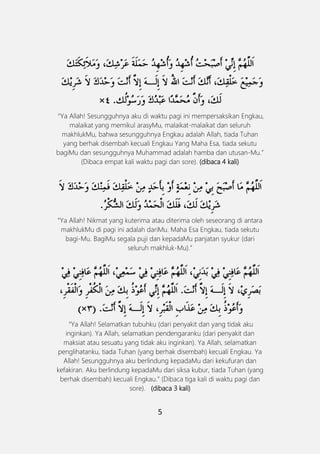 اَللَّهُمَّ إِنِّيْ أَصْبَحْتُ أُشْهِدُكَ وَأُشْهِدُ حَمَلَةَ عَرْشِكَ، وَمَلاَئِكَتَكَ
وَجَمِيْعَ خَلْقِكَ، أَنَّكَ أَنْتَ اللهُ لاَ إِلَـهَ إِلاَّ أَنْتَ وَحْدَكَ لاَ شَرِيْكَ
لَكَ، وَأَنَّ مُحَمَّدًا عَبْدُكَ وَرَسُوْلُكَ. ٤×
“Ya Allah! Sesungguhnya aku di waktu pagi ini mempersaksikan Engkau,
malaikat yang memikul arasyMu, malaikat-malaikat dan seluruh
makhlukMu, bahwa sesungguhnya Engkau adalah Allah, tiada Tuhan
yang berhak disembah kecuali Engkau Yang Maha Esa, tiada sekutu
bagiMu dan sesungguhnya Muhammad adalah hamba dan utusan-Mu.”
(Dibaca empat kali waktu pagi dan sore). (dibaca 4 kali)
اَللَّهُمَّ مَا أَصْبَحَ بِيْ مِنْ نِعْمَةٍ أَوْ بِأَحَدٍ مِنْ خَلْقِكَ فَمِنْكَ وَحْدَكَ لاَ
شَرِيْكَ لَكَ، فَلَكَ الْحَمْدُ وَلَكَ الشُّكْرُ.
“Ya Allah! Nikmat yang kuterima atau diterima oleh seseorang di antara
makhlukMu di pagi ini adalah dariMu. Maha Esa Engkau, tiada sekutu
bagi-Mu. BagiMu segala puji dan kepadaMu panjatan syukur (dari
seluruh makhluk-Mu).”
اَللَّهُمَّ عَافِنِيْ فِيْ بَدَنِيْ، اَللَّهُمَّ عَافِنِيْ فِيْ سَمْعِيْ، اَللَّهُمَّ عَافِنِيْ فِيْ
بَصَرِيْ، لاَ إِلَـهَ إِلاَّ أَنْتَ. اَللَّهُمَّ إِنِّي أَعُوْذُ بِكَ مِنَ الْكُفْرِ وَالْفَقْرِ،
وَأَعُوْذُ بِكَ مِنْ عَذَابِ الْقَبْرِ، لاَ إِلَـهَ إِلاَّ أَنْتَ. (٣×)
“Ya Allah! Selamatkan tubuhku (dari penyakit dan yang tidak aku
inginkan). Ya Allah, selamatkan pendengaranku (dari penyakit dan
maksiat atau sesuatu yang tidak aku inginkan). Ya Allah, selamatkan
penglihatanku, tiada Tuhan (yang berhak disembah) kecuali Engkau. Ya
Allah! Sesungguhnya aku berlindung kepadaMu dari kekufuran dan
kefakiran. Aku berlindung kepadaMu dari siksa kubur, tiada Tuhan (yang
berhak disembah) kecuali Engkau.” (Dibaca tiga kali di waktu pagi dan
sore). (dibaca 3 kali)
5